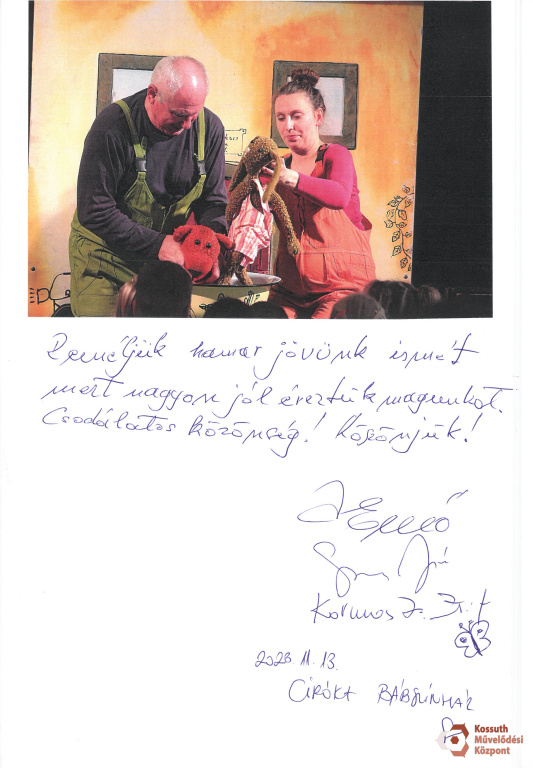 Reméljük hamar jövünk ismét
mert nagyon jól éreztük magunkat.
Csodálatos közönség! Köszönjük!
Kormos
2023. 11. 13.
CIRÓKA BÁBSZÍNHÁZ
Kossuth
Művelődési
Központ